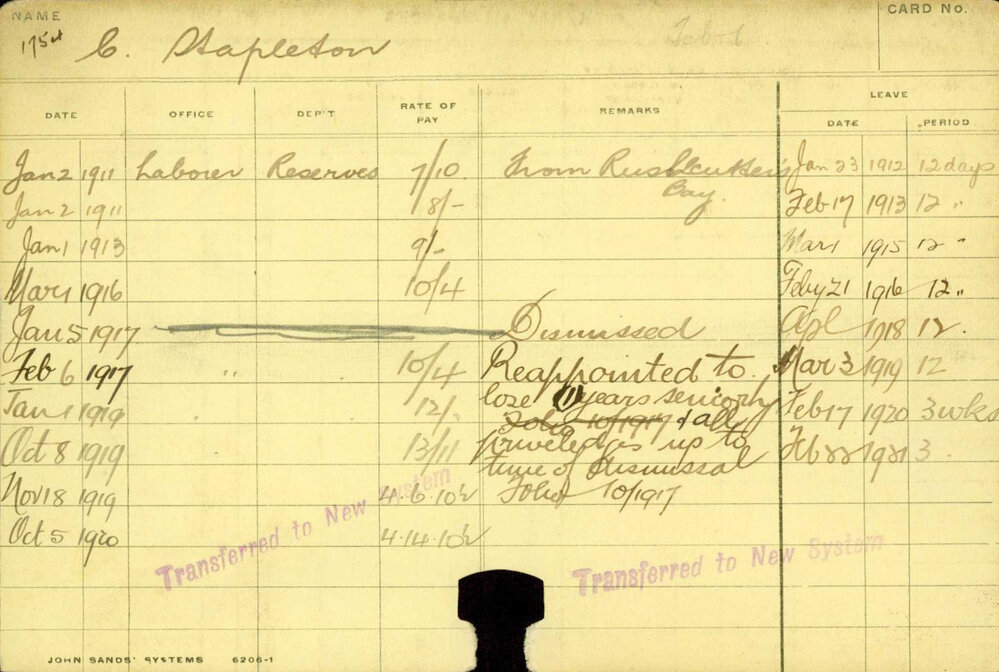 NAME
CARD No.
C. Stapleton
LEAVE
DATE OFFICE DEP'T RATE OF PAY REMARKS DATE PERIOD
Jan 2 1911 Laborer Reserves 7/10 From Rushcutters Jan 23 1912 12 days
Bay.
Jan 2 1911 8/- Feb 17 1913 12 "
Jan 1 1913 9/- Mar 1 1915 12 "
Mar 1 1916 10/4 Feby 21 1916 12 "
Jan 5 1917 Dismissed Apl 1918 12.
Feb 6 1917 " 10/4 Reappointed to Mar 3 1919 12
lose 11 years seniority
Jan 1 1919 12/. Folio 10/1917 & all Feb 17 1920 3 wks
Oct 8 1919 13/11 priveledges up to Feb 22 1921 3
time of dismissal
Nov 18 1919 4.6.10½ Folio 10/1917
Oct 5 1920 4.14.10½
Transferred to New System
Transferred to New System
JOHN SANDS' SYSTEMS 6206-1